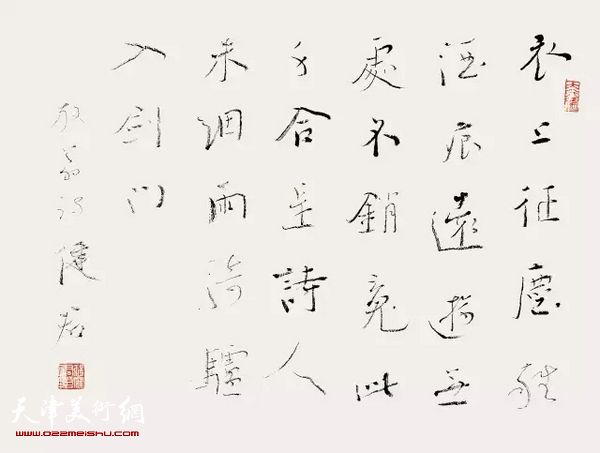 衣上征塵雜
酒痕遠遊無
處不銷魂此
身合是詩人
未細雨騎驢
入劍門
放翁詩健君
天津美術網
www.022meishu.com